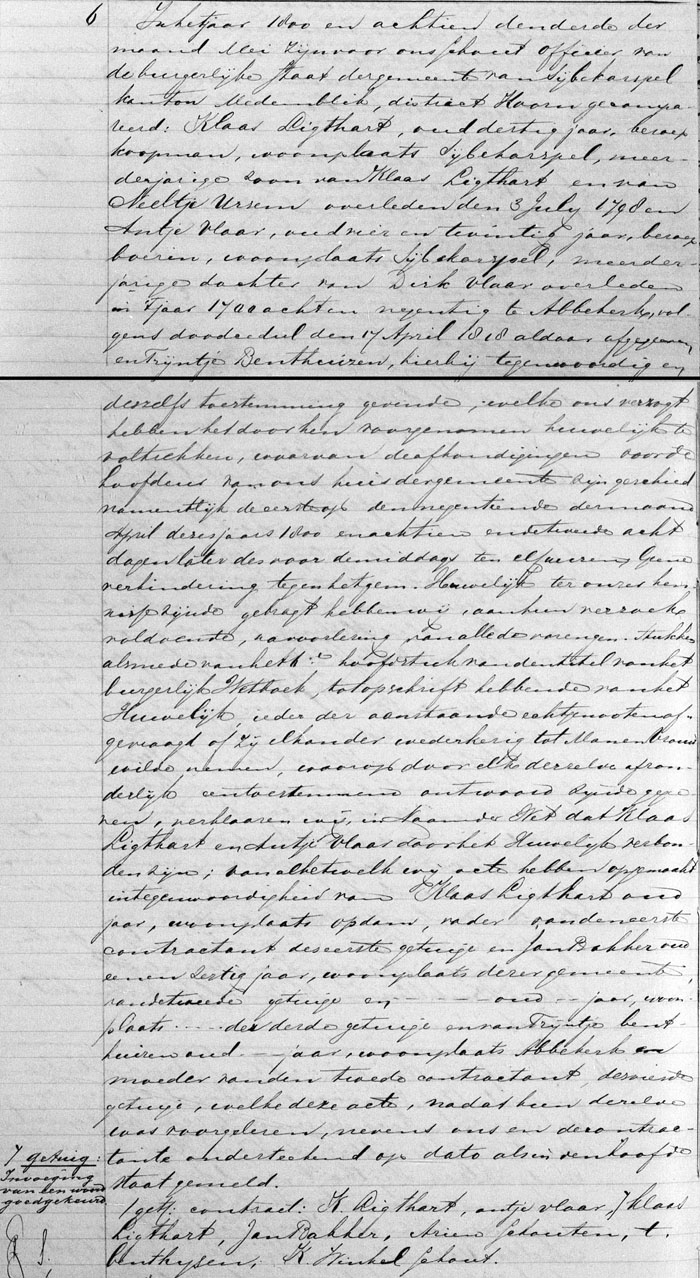 6 In het jaar 1800 en achtien den derde der
maand Mei zijn voor ons Schout officier van
de burgerlijke staat der gemeente van Sijbekarspel
kanton Medemblik, district Hoorn gecompa-
reerd: Klaas Ligthart, oud dertig jaar, beroep
koopman, woonplaats Sijbekarspel, meer-
derjarige zoon van Klaas Ligthart en van
Neeltje Ursem overleden den 3 July 1798 en
Antje Vlaar, oud vier en twintig jaar, beroep
boerin, woonplaats Sijbekarspel, meerder-
jarige dochter van Dirk Vlaar overleden
in 't jaar 1700 acht en negentig te Abbekerk, vol-
gens doodcedul den 17 April 1818 aldaar afgegeven
en Trijntje Benthuizen, hierbij tegenwoordig en
deszelfs toestemming gevende, welke ons verzogt
hebben het door hen voorgenomen huwelijk te
voltrekken, waarvan de afkondigingen voor de
hoofdeur van ons huis der gemeente zijn geschied
namentlijk de eerste op den negentiende der maand
April dezes jaars 1800 en achtien en de tweede acht
dagen later des voor demiddags ten elf uuren, Geene
verhindering tegen het gem. Huwelijk ter onzer ken-
nisse zijnde gebragt hebben wij, aan hun verzoek
voldoende, na voorlezing van alle de vorengen. stukken
alsmede van het 6e hoofdstuk van den titel van het
burgerlijk Wetboek, tot opschrift hebbende van het
Huwelijk, ieder der aanstaande echtgenooten af-
gevraagd of zij elkander wederkerig tot Man en Vrouw
wilde nemen, waarop door elk derzelve afzon-
derlijk een toestemmend antwoord zijnde gege-
ven, verklaaren wij, in Naam der Wet dat Klaas
Ligthart en Antje Vlaar door het Huwelijk verbon-
den zijn; van al hetwelk wij acte hebben opgemaakt
in tegenwoordigheid van Klaas Ligthart oud
jaar, woonplaats opdam, vader van den eerste
contractant des eerste getuige en Jan Bakker oud
eenen zestig jaar, woonplaats dezer gemeente,
van de tweede getuige en - - - - oud - - jaar, woon-
plaats . . . . der derde getuige en van Trijntje bent-
huizen oud - - - jaar, woonplaats Abbekerk
moeder van den twede contractant, de vierde
getuige, welke deze acte, nadat hun dezelve
was voorgelezen, nevens ons en de contrac-
tante onderteekend op dato als in den hoofde
staat gemeld.
/get: contract: K. Ligthart, antje vlaar, 7 Klaas
Ligthart, Jan Bakker, Arien Schouten, t.
benthysen, K Winkel Schout.
7 getuig:
Invoeging
van een woord
goedgekeurd
S;